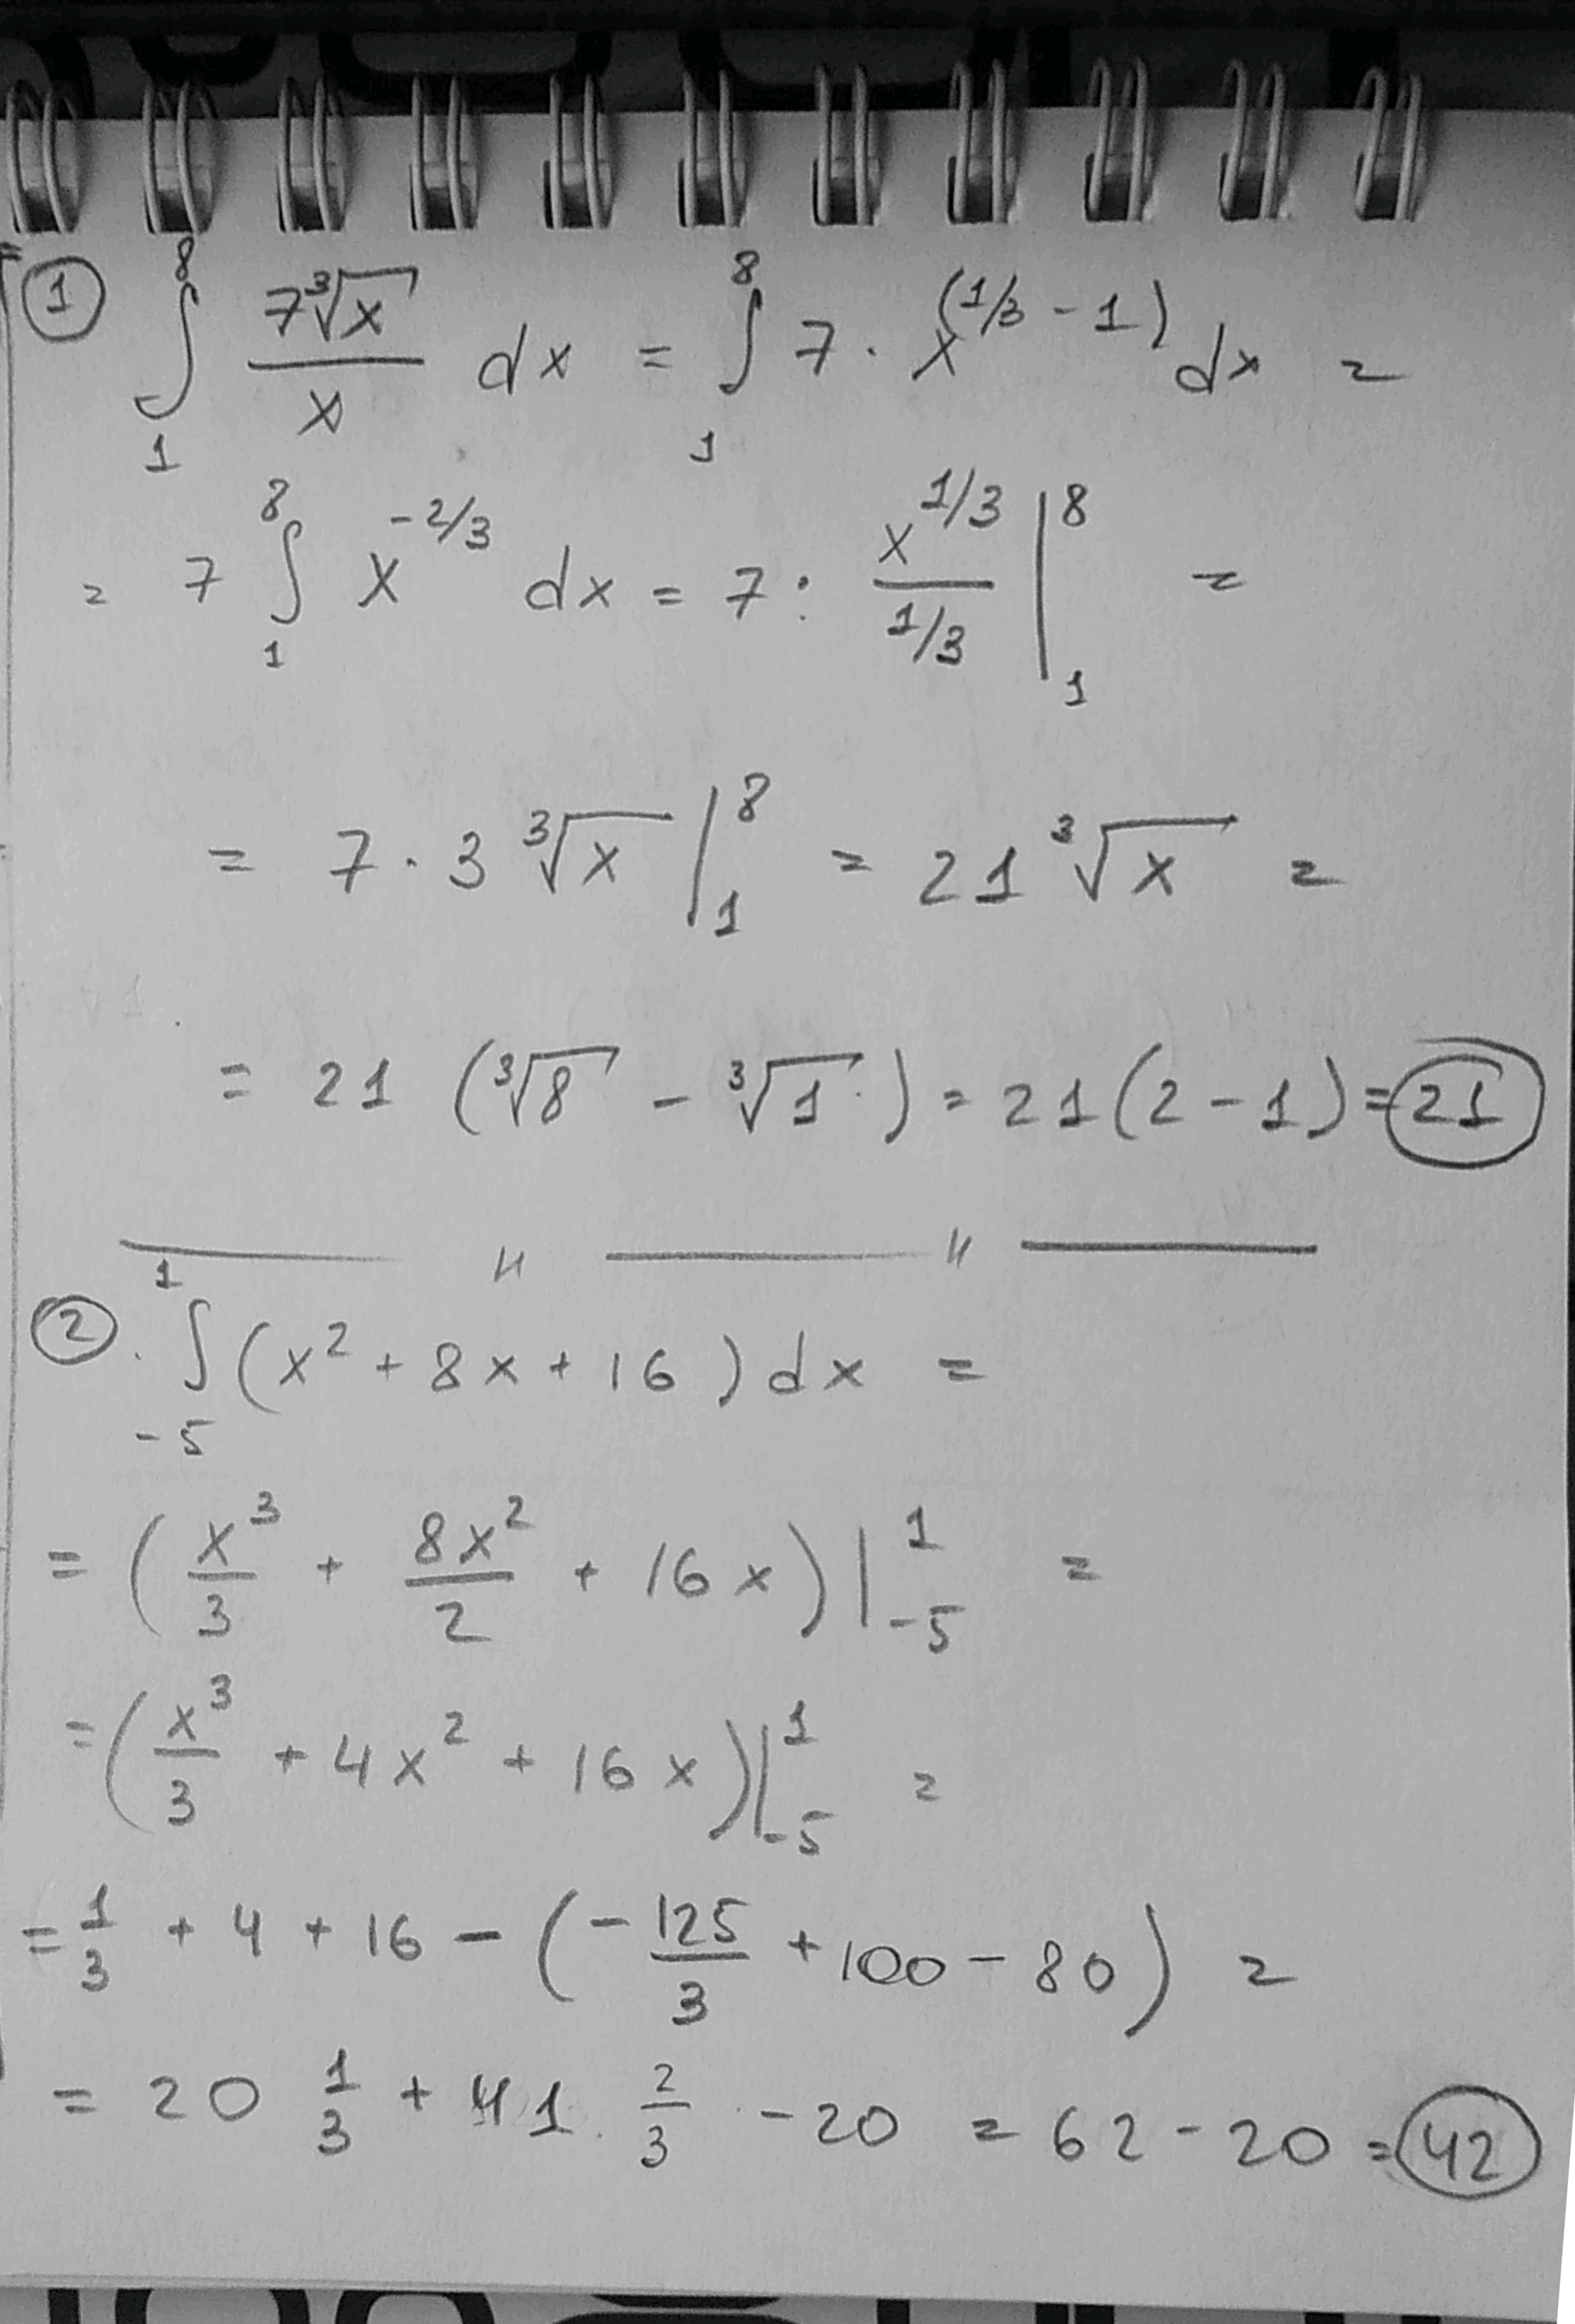 ① ∫₁⁸ 7∛x / x dx = ∫₁⁸ 7 · x^(1/3 - 1) dx =
= 7 ∫₁⁸ x^(-2/3) dx = 7 · x^(1/3) / (1/3) |₁⁸ =
= 7 · 3 ∛x |₁⁸ = 21 ∛x =
= 21 (∛8 - ∛1) = 21(2 - 1) = 21
② ∫₋₅¹ (x² + 8x + 16) dx =
= (x³/3 + 8x²/2 + 16x) |₋₅¹ =
= (x³/3 + 4x² + 16x) |₋₅¹ =
= 1/3 + 4 + 16 - (- 125/3 + 100 - 80) =
= 20 1/3 + 41 2/3 - 20 = 62 - 20 = 42